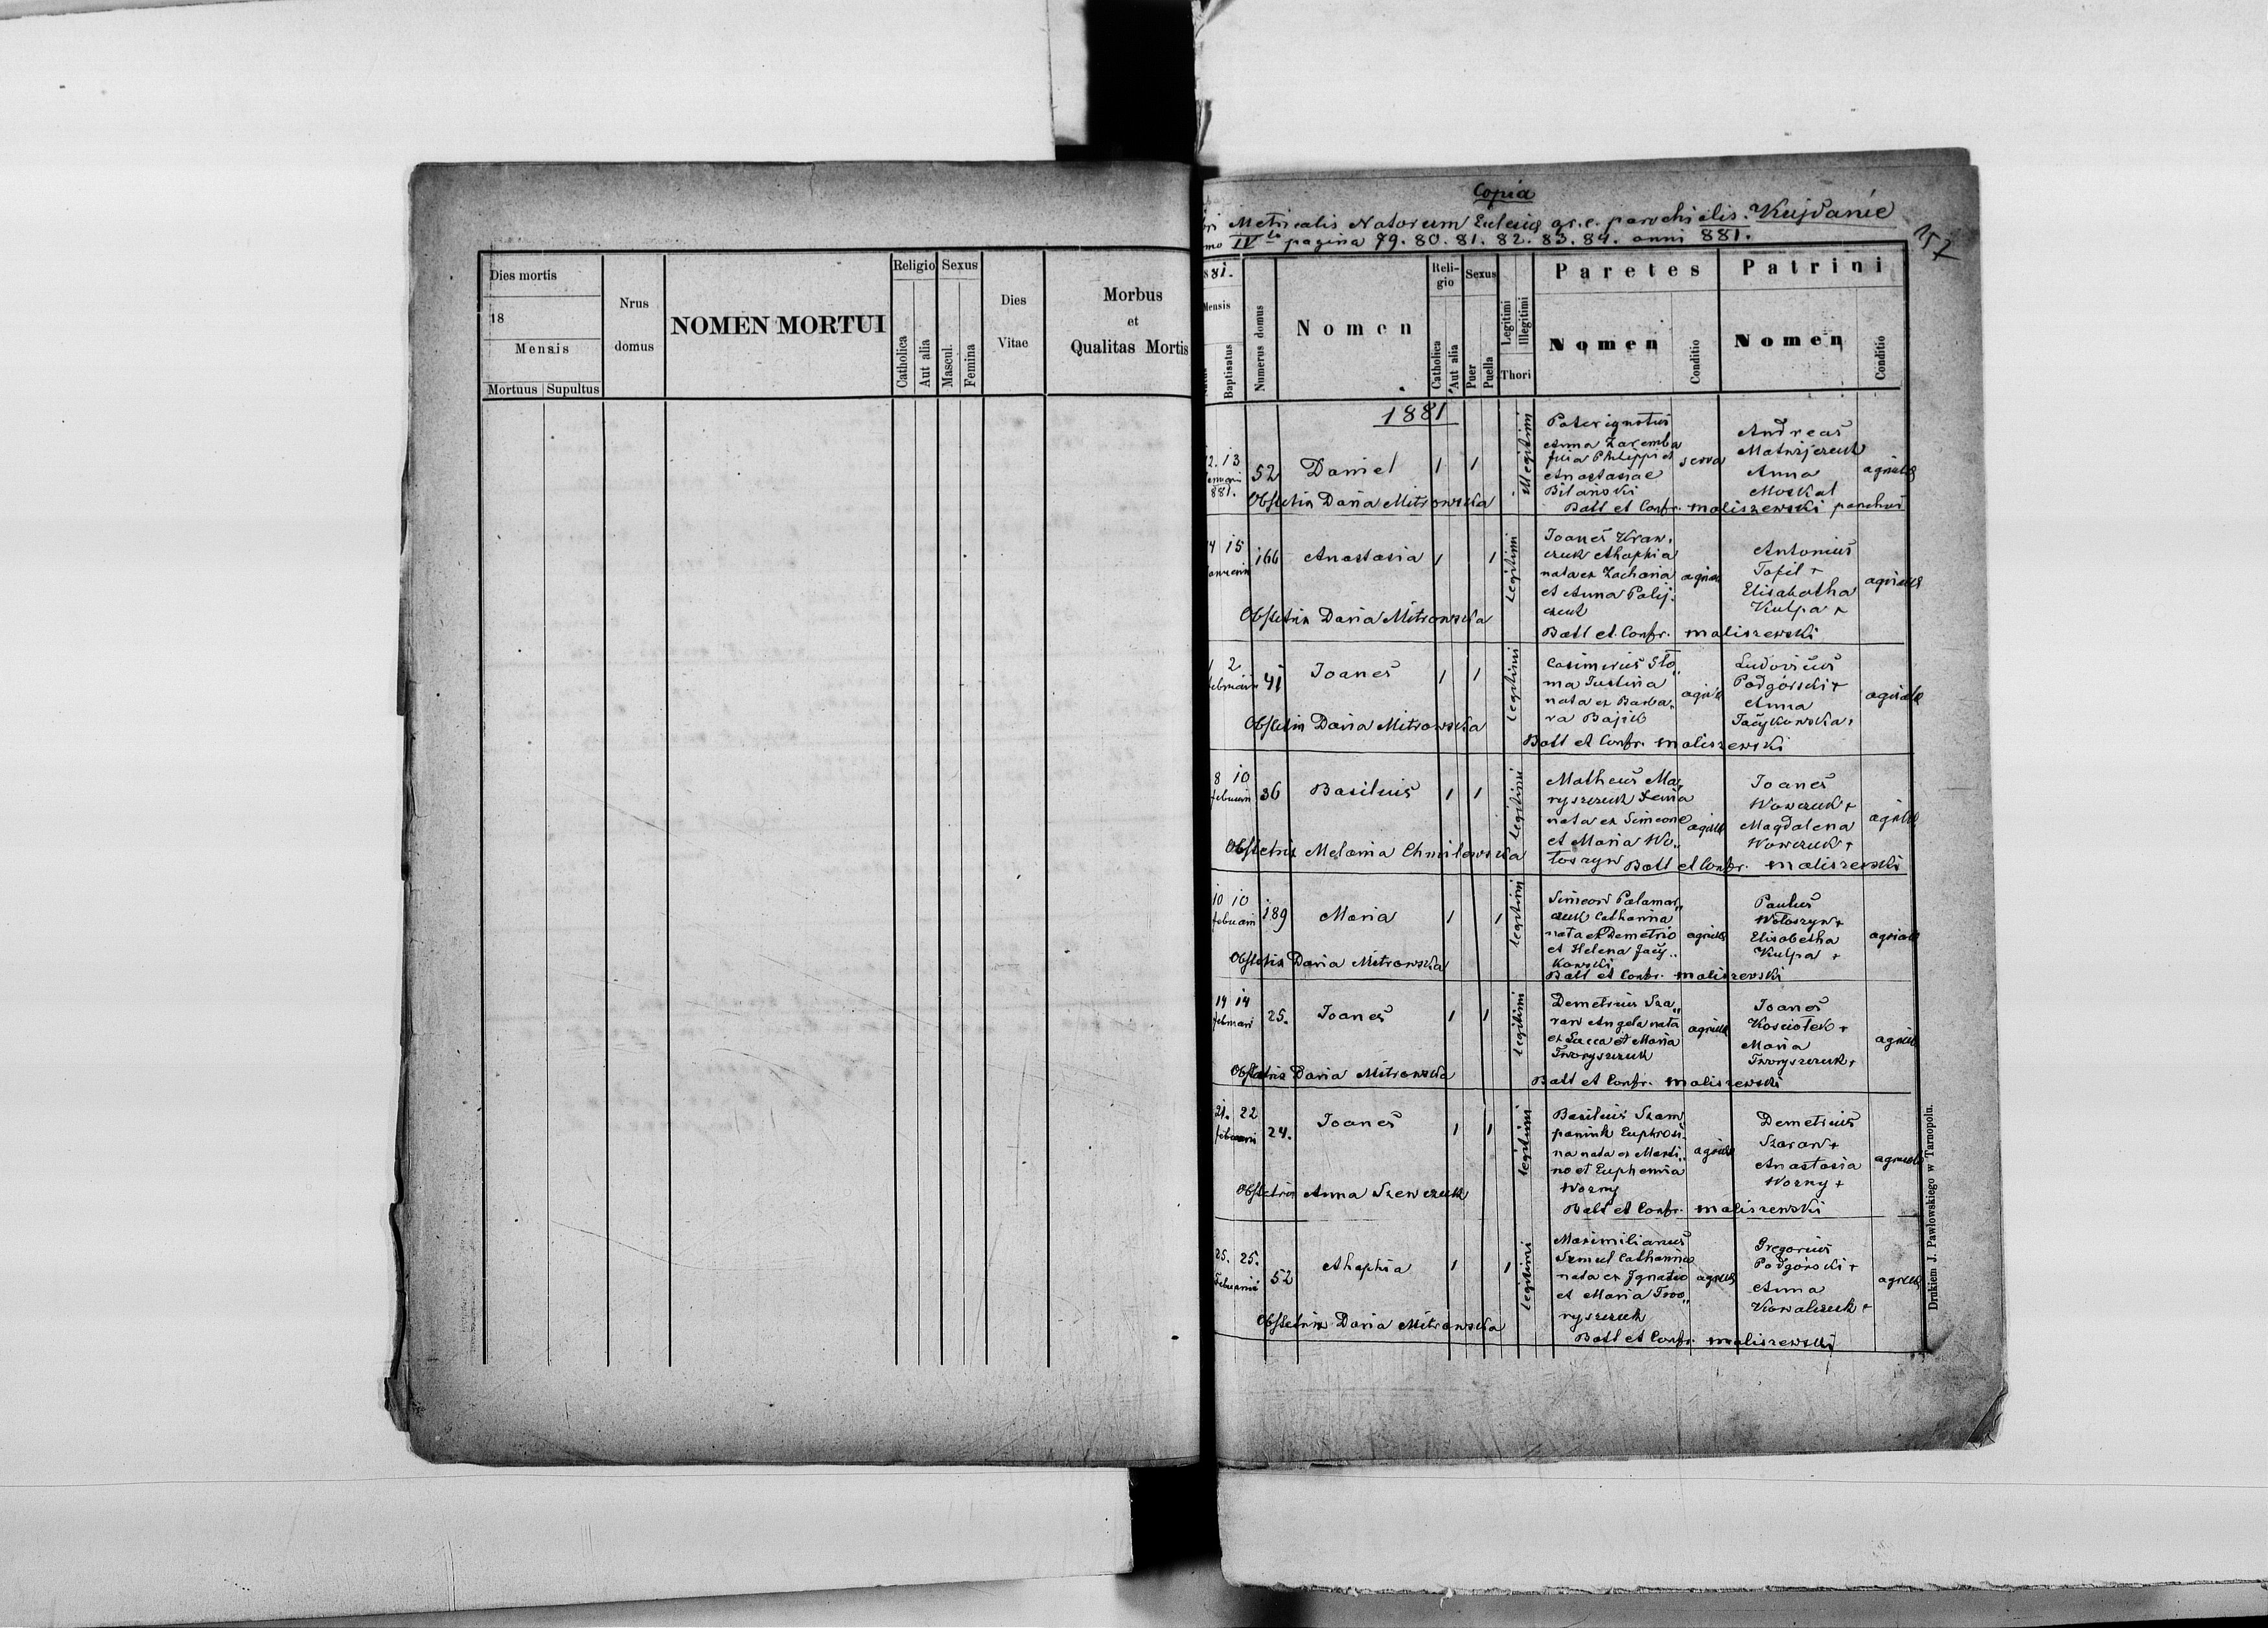 Dies mortis
18
Mensis
Mortuus Supultus
Nrus
domus
NOMEN MORTUI
Religio
Catholica
Aut alia
Sexus
Mascul.
Femina
Dies
Vitae
Morbus
et
Qualitas Mortis
Copia
Metricalis Natorum Eclesiae gr. c. parochialis. Kujdanie
IV to pagina 79. 80. 81. 82. 83. 84. anni 881.
157
881.
Mensis
Baptisatus
Numerus domus
Nomen
Reli-
gio
Catholica
Aut alia
Sexus
Puer
Puella
Legitimi
Illegitimi
Thori
Paretes
Nomen
Conditio
Patrini
Nomen
Conditio
1881
12. 13
881.
52
Daniel
1 1
Illegitimi
Pater ignotus
Anna Zaremba
filia Philippi et
Anastasiae
Bilański
serva
Andreas
Matwijczuk
Anna
Moskal
agricolae
Obstetrix Daria Mitrowska
Batt et Confr. Maliszewski parochus
14 15
Januarii
166
Anastasia
1 1
Legitimi
Joanes Kraw,
czuk Ahaphia
nata ex Zacharia
et Anna Palij,
czuk
agricolae
Antonius
Tofil +
Elisabetha
Kulpa +
agricolae
Obstetrix Daria Mitrowska
Batt et Confr. Maliszewski
1 2
Februarii
41
Joanes
1 1
Legitimi
Casimirus Sło,,
ma Justina
nata ex Barba,,
ra Bajik
agricolae
Ludovicus
Podgórski +
Anna
Jacykowska +
agricolae
Obstetrix Daria Mitrowska
Batt et Confr. Maliszewski
8 10
Februarii
36
Basilius
1 1
Legitimi
Matheus Ma,,
ryszczuk Xenia
nata ex Simeone
et Maria Wo,,
łoszyn
agricolae
Joanes
Wowczuk +
Magdalena
Wowczuk +
agricolae
Obstetrix Melania Chmilewska
Batt et Confr. Maliszewski
10 10
Februarii
189
Maria
1 1
Legitimi
Simeon Palamar,,
czuk Catharina
nata ex Demetrio
et Helena Jacy,,
kowski
agricolae
Paulus
Wołoszyn +
Elisabetha
Kulpa +
agricolae
Obstetrix Daria Mitrowska
Batt et Confr. Maliszewski
14 14
Februarii
25.
Joanes
1 1
Legitimi
Demetrius Sza,,
ran Angela nata
ex Lucca et Maria
Tworyszczuk
agricolae
Joanes
Kosciołek +
Maria
Tworyszczuk +
agricolae
Obstetrix Daria Mitrowska
Batt et Confr. Maliszewski
21. 22
Februarii
24.
Joanes
1 1
Legitimi
Basilius Szam,,
paniuk Euphrosi,,
na nata ex Marti,,
no et Euphemia
Wozny
agricolae
Demetrius
Szaran +
Anastasia
Wozny +
agricolae
Obstetrix Anna Szewczuk
Batt et Confr. Maliszewski
25. 25.
Februarii
52
Ahaphia
1 1
Legitimi
Maximilianus
Szmul Catharina
nata ex Ignatio
et Maria Two,,
ryszczuk
agricolae
Gregorius
Podgórski +
Anna
Kowalczuk +
agricolae
Obstetrix Daria Mitrowska
Batt et Confr. Maliszewski
Drukiem J. Pawłowskiego w Tarnopolu.